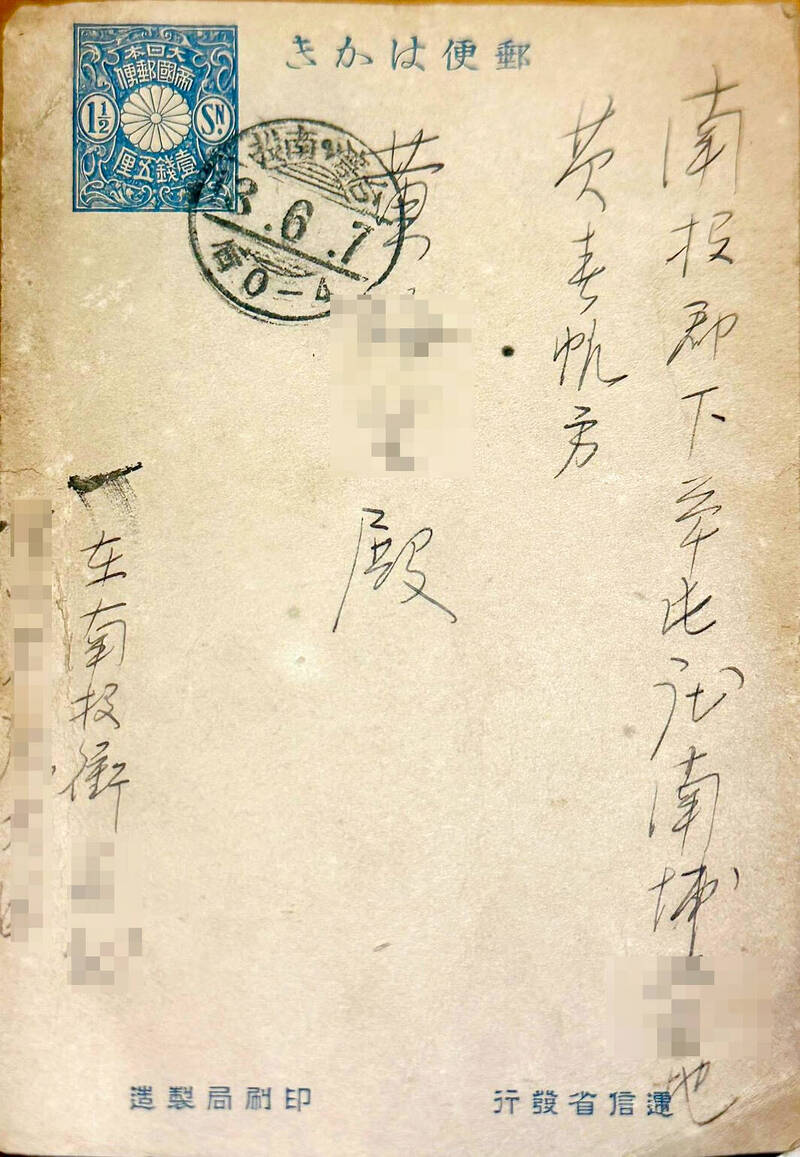 郵便はかき
大日本
帝國郵便
1½ SN.
壹錢五厘
台灣・南投
8.6.7
后0-4
南投郡下草屯庄南埔
地
黄春帆方
黄
殿
在南投街
遞信省發行
印刷局製造